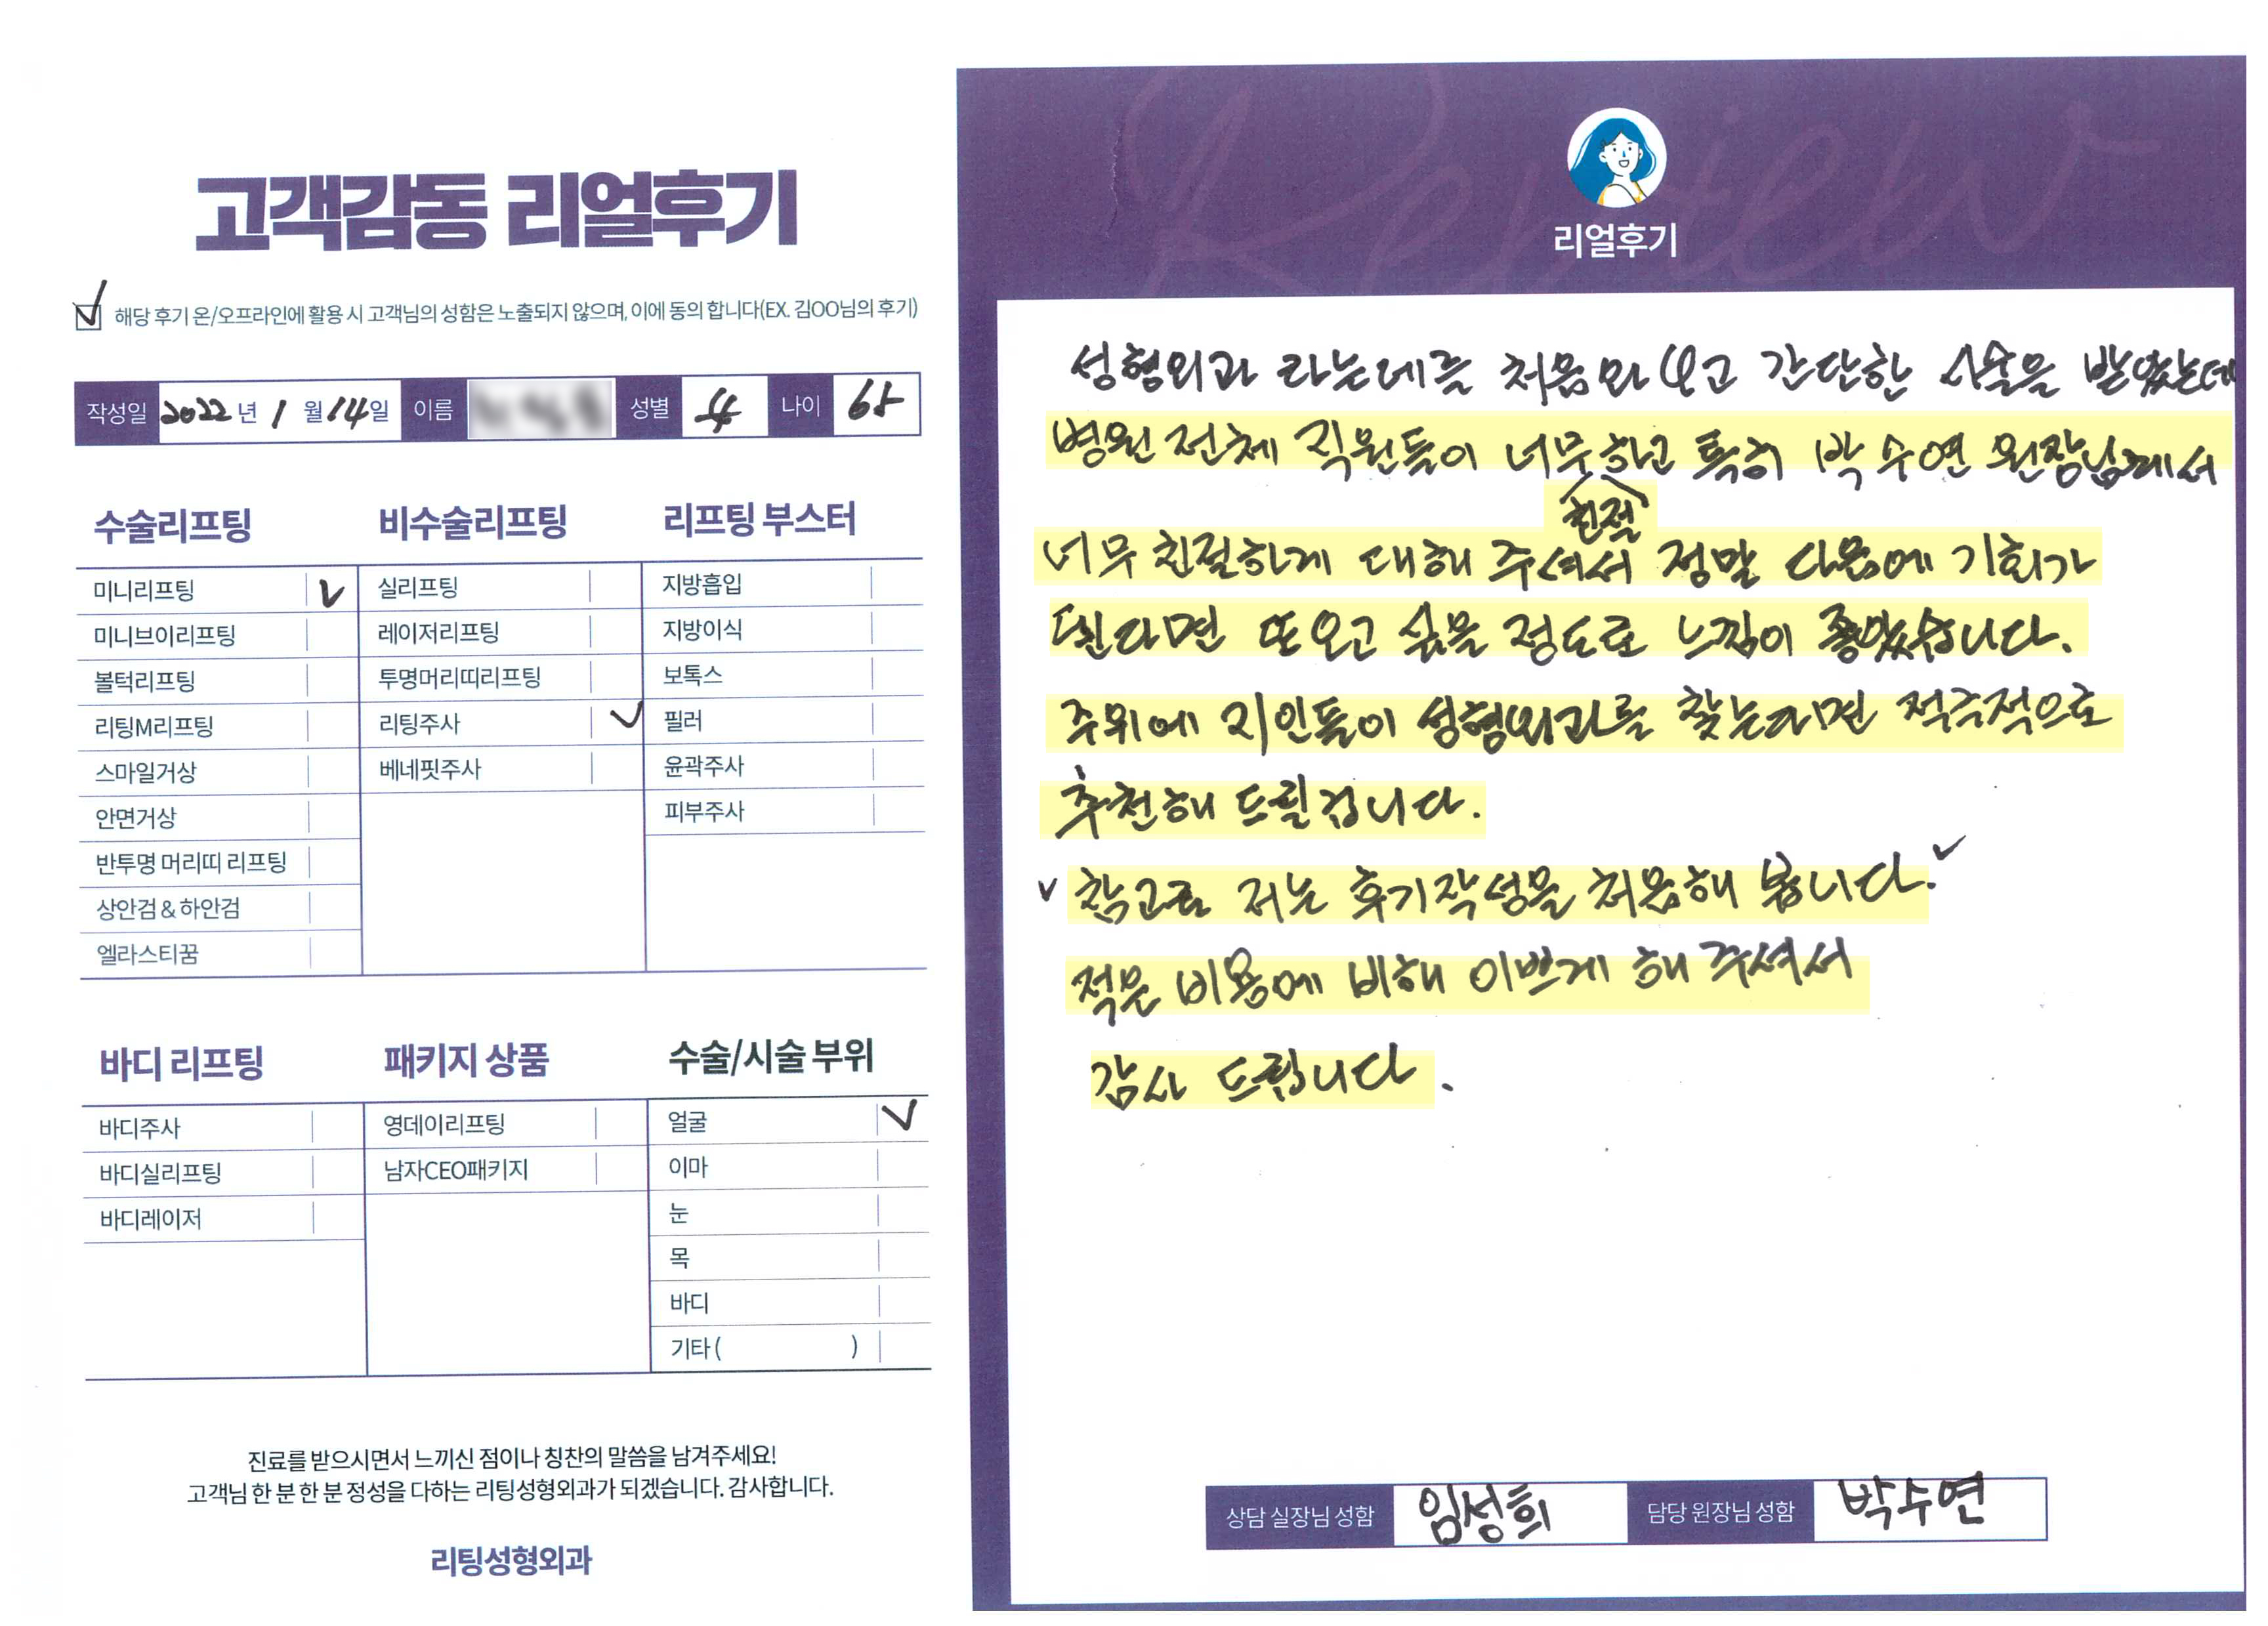 고객감동 리얼후기
해당 후기 온/오프라인에 활용 시 고객님의 성함은 노출되지 않으며, 이에 동의 합니다(EX. 김OO님의 후기)
작성일 2022년 1월 14일 이름 성별 나이
수술리프팅
미니리프팅
미니브이리프팅
볼턱리프팅
리팅M리프팅
스마일거상
안면거상
반투명 머리띠 리프팅
상안검 & 하안검
엘라스티꿈
비수술리프팅
실리프팅
레이저리프팅
투명머리띠리프팅
리팅주사
베네핏주사
리프팅 부스터
지방흡입
지방이식
보톡스
필러
윤곽주사
피부주사
바디 리프팅
바디주사
바디실리프팅
바디레이저
패키지 상품
영데이리프팅
남자CEO패키지
수술/시술 부위
얼굴
이마
눈
목
바디
기타 ( )
진료를 받으시면서 느끼신 점이나 칭찬의 말씀을 남겨주세요!
고객님 한 분 한 분 정성을 다하는 리팅성형외과가 되겠습니다. 감사합니다.
리팅성형외과
Review
리얼후기
성형외과 라는데를 처음와 보고 간단한 시술을 받았는데
병원 전체 직원들이 너무 친절하고 특히 박수연 원장님께서
너무 친절하게 대해 주셔서 정말 다음에 기회가
된다면 또 오고 싶을 정도로 느낌이 좋았습니다.
주위에 지인들이 성형외과를 찾는다면 적극적으로
추천해 드릴겁니다.
참고로 저는 후기작성을 처음해 봅니다.
적은 비용에 비해 이쁘게 해 주셔서
감사 드립니다.
상담 실장님 성함 임성희 담당 원장님 성함 박수연